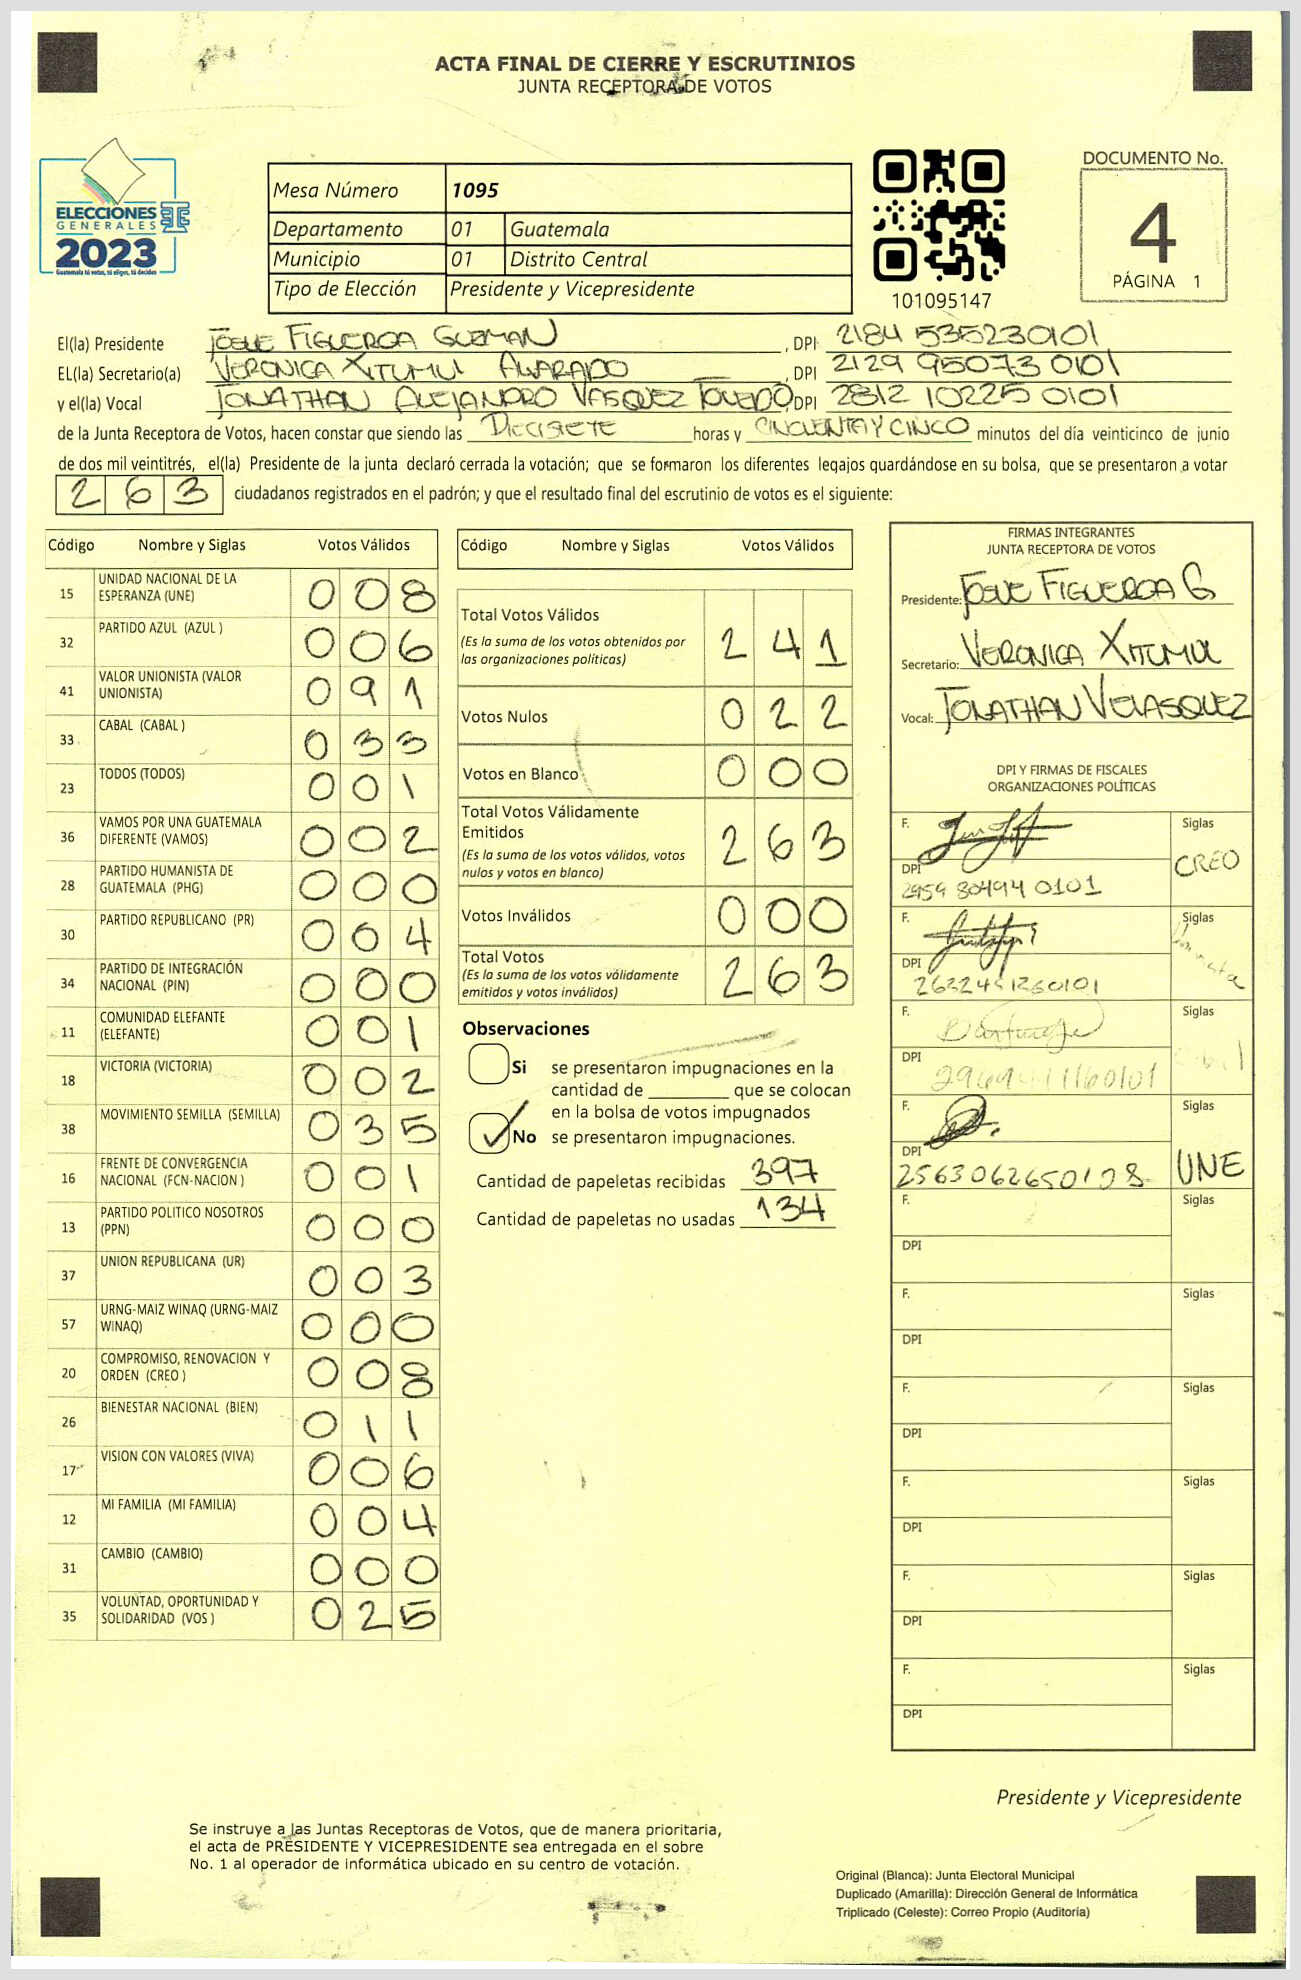 ACTA FINAL DE CIERRE Y ESCRUTINIOS
JUNTA RECEPTORA DE VOTOS
ELECCIONES
GENERALES
2023
Guatemala tú votas, tú eliges, tú decides
Mesa Número 1095
Departamento 01 Guatemala
Municipio 01 Distrito Central
Tipo de Elección Presidente y Vicepresidente
101095147
DOCUMENTO No.
4
PÁGINA 1
El(la) Presidente JOSUE FIGUEROA GUZMAN, DPI 2184 535230101
EL(la) Secretario(a) VERONICA XITUMUL ALVARADO, DPI 2129 95073 0101
y el(la) Vocal JONATHAN ALEJANDRO VASQUEZ TOLEDO, DPI 2812 10225 0101
de la Junta Receptora de Votos, hacen constar que siendo las DIECISIETE horas y CINCUENTA Y CINCO minutos del día veinticinco de junio
de dos mil veintitrés, el(la) Presidente de la junta declaró cerrada la votación; que se formaron los diferentes legajos guardándose en su bolsa, que se presentaron a votar
263 ciudadanos registrados en el padrón; y que el resultado final del escrutinio de votos es el siguiente:
Código Nombre y Siglas Votos Válidos
15 UNIDAD NACIONAL DE LA ESPERANZA (UNE) 008
32 PARTIDO AZUL (AZUL ) 006
41 VALOR UNIONISTA (VALOR UNIONISTA) 091
33 CABAL (CABAL ) 033
23 TODOS (TODOS) 001
36 VAMOS POR UNA GUATEMALA DIFERENTE (VAMOS) 002
28 PARTIDO HUMANISTA DE GUATEMALA (PHG) 000
30 PARTIDO REPUBLICANO (PR) 004
34 PARTIDO DE INTEGRACIÓN NACIONAL (PIN) 000
11 COMUNIDAD ELEFANTE (ELEFANTE) 001
18 VICTORIA (VICTORIA) 002
38 MOVIMIENTO SEMILLA (SEMILLA) 035
16 FRENTE DE CONVERGENCIA NACIONAL (FCN-NACION ) 001
13 PARTIDO POLITICO NOSOTROS (PPN) 000
37 UNION REPUBLICANA (UR) 003
57 URNG-MAIZ WINAQ (URNG-MAIZ WINAQ) 000
20 COMPROMISO, RENOVACION Y ORDEN (CREO ) 008
26 BIENESTAR NACIONAL (BIEN) 011
17 VISION CON VALORES (VIVA) 006
12 MI FAMILIA (MI FAMILIA) 004
31 CAMBIO (CAMBIO) 000
35 VOLUNTAD, OPORTUNIDAD Y SOLIDARIDAD (VOS ) 025
Código Nombre y Siglas Votos Válidos
Total Votos Válidos 241
(Es la suma de los votos obtenidos por
las organizaciones políticas)
Votos Nulos 022
Votos en Blanco 000
Total Votos Válidamente
Emitidos 263
(Es la suma de los votos válidos, votos
nulos y votos en blanco)
Votos Inválidos 000
Total Votos 263
(Es la suma de los votos válidamente
emitidos y votos inválidos)
Observaciones
Si se presentaron impugnaciones en la
cantidad de ________ que se colocan
en la bolsa de votos impugnados
No se presentaron impugnaciones.
Cantidad de papeletas recibidas 397
Cantidad de papeletas no usadas 134
FIRMAS INTEGRANTES
JUNTA RECEPTORA DE VOTOS
Presidente: JOSUE FIGUEROA G
Secretario: VERONICA XITUMUL
Vocal: JONATHAN VELASQUEZ
DPI Y FIRMAS DE FISCALES
ORGANIZACIONES POLÍTICAS
F. Siglas
CREO
DPI
2959 80494 0101
F. Siglas
DPI
F. Siglas
DPI
F. Siglas
DPI UNE
F. Siglas
DPI
F. Siglas
DPI
F. Siglas
DPI
F. Siglas
DPI
F. Siglas
DPI
F. Siglas
DPI
Presidente y Vicepresidente
Se instruye a las Juntas Receptoras de Votos, que de manera prioritaria,
el acta de PRESIDENTE Y VICEPRESIDENTE sea entregada en el sobre
No. 1 al operador de informática ubicado en su centro de votación.
Original (Blanca): Junta Electoral Municipal
Duplicado (Amarilla): Dirección General de Informática
Triplicado (Celeste): Correo Propio (Auditoría)